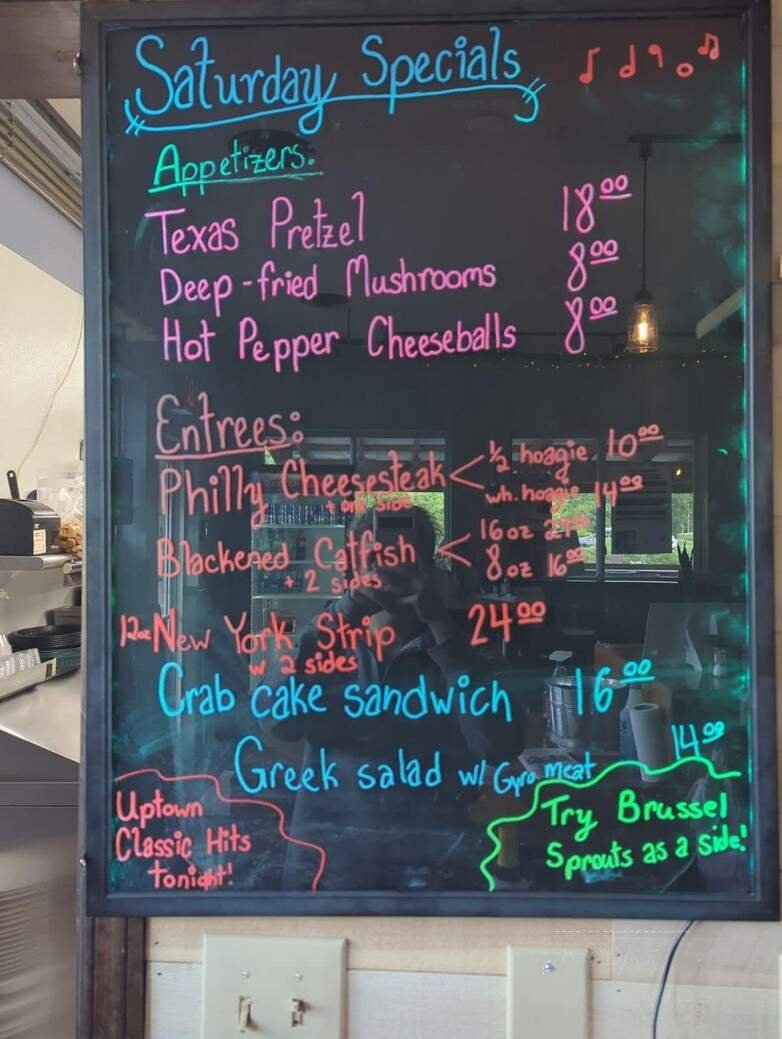 Saturday Specials
Appetizers:
Texas Pretzel 18⁰⁰
Deep-fried Mushrooms 8⁰⁰
Hot Pepper Cheeseballs 8⁰⁰
Entrees:
Philly Cheesesteak < ½ hoagie 10⁰⁰
wh. hoagie 14⁰⁰
+ one side
Blackened Catfish < 16 oz
8 oz 16⁰⁰
+ 2 sides
12oz New York Strip 24⁰⁰
w 2 sides
Crab cake sandwich 16⁰⁰
Greek salad w/ Gyro meat 14⁰⁰
Uptown
Classic Hits
tonight!
Try Brussel
Sprouts as a side!